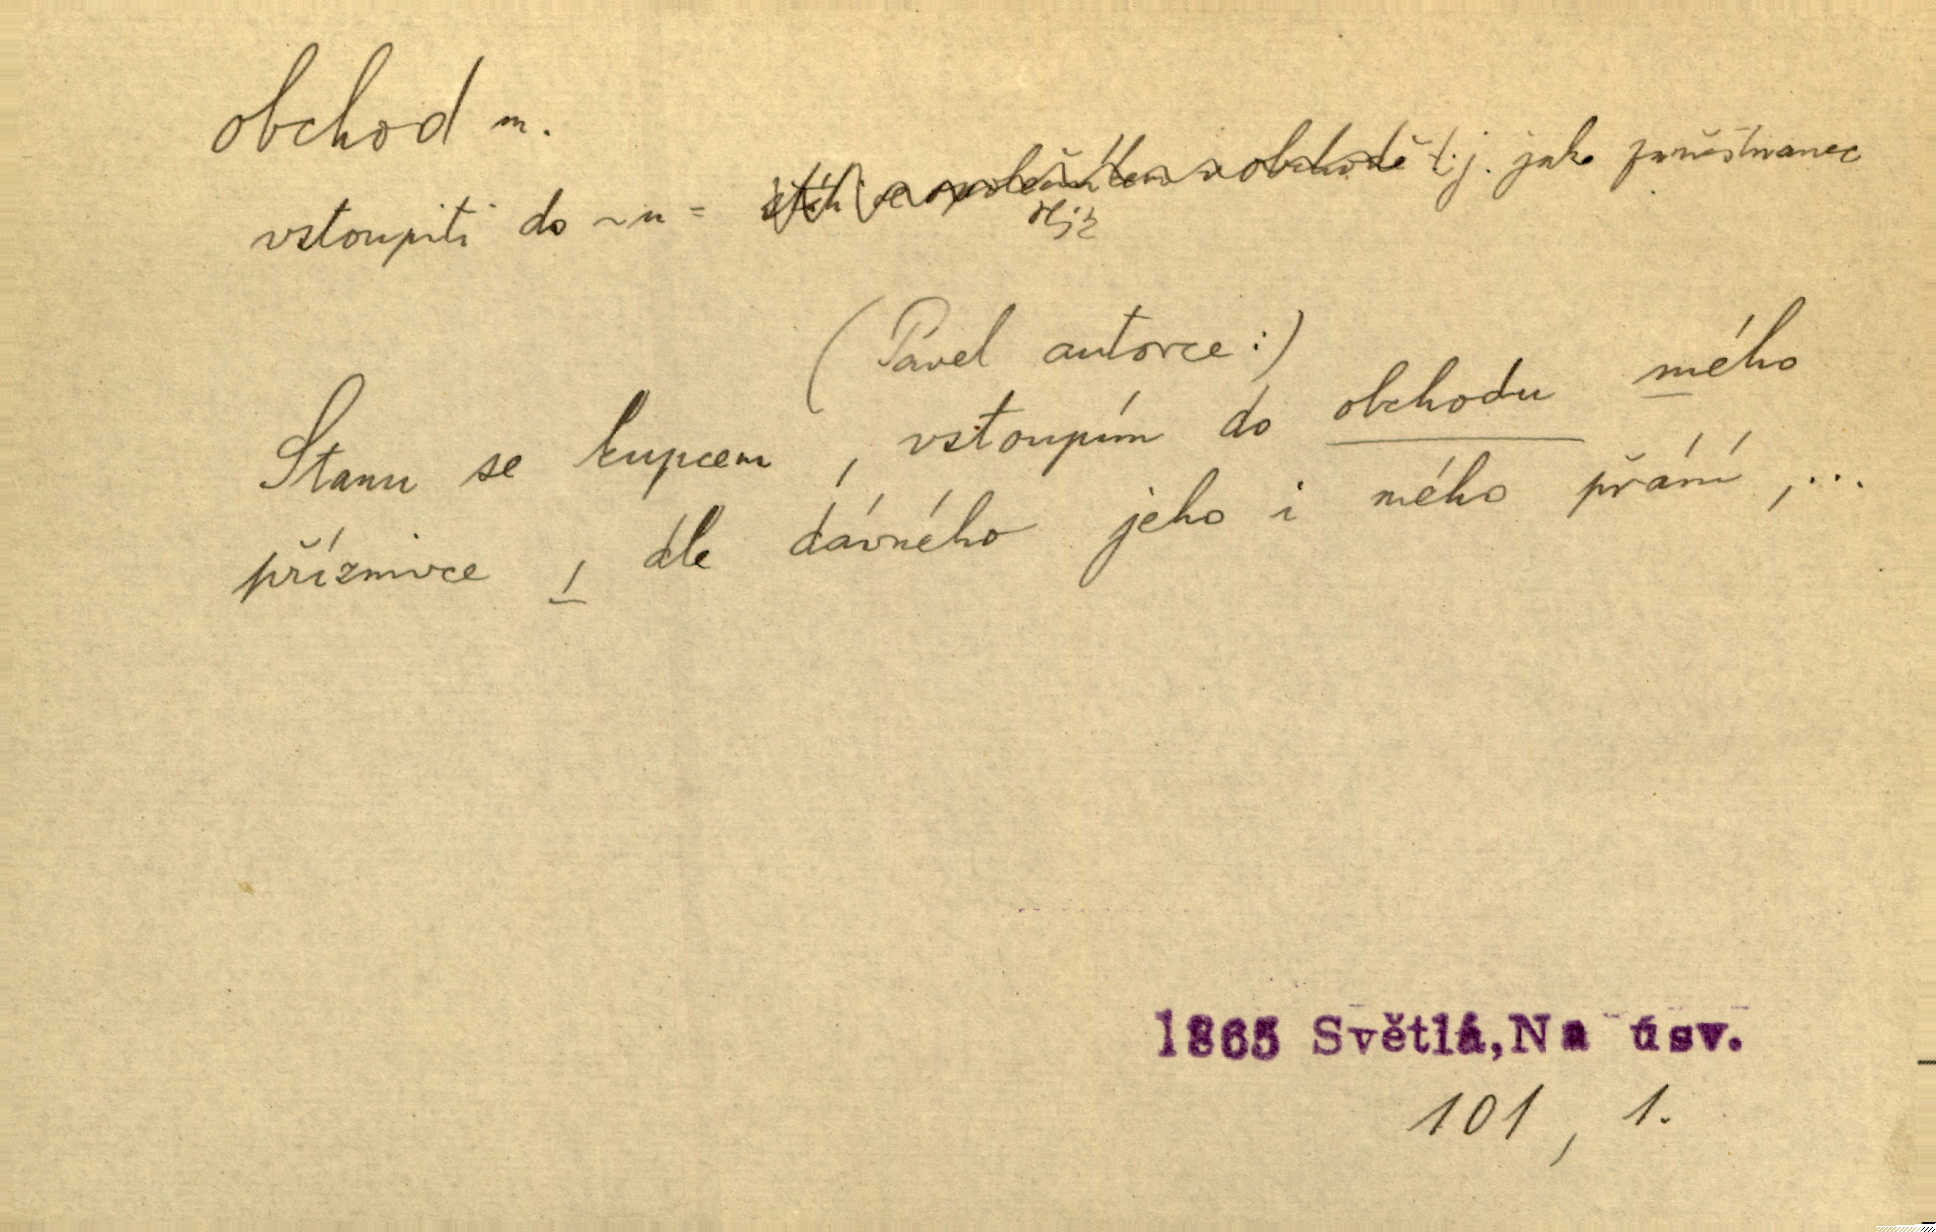 obchod m.
vstoupiti do ~u = státi se společníkem v obchodě t.j. jako zaměstnanec
(Pavel autorce:)
Stanu se kupcem, vstoupím do obchodu mého
příznivce, dle dávného jeho i mého přání,...
1865 Světlá, Na úsv.
101, 1.